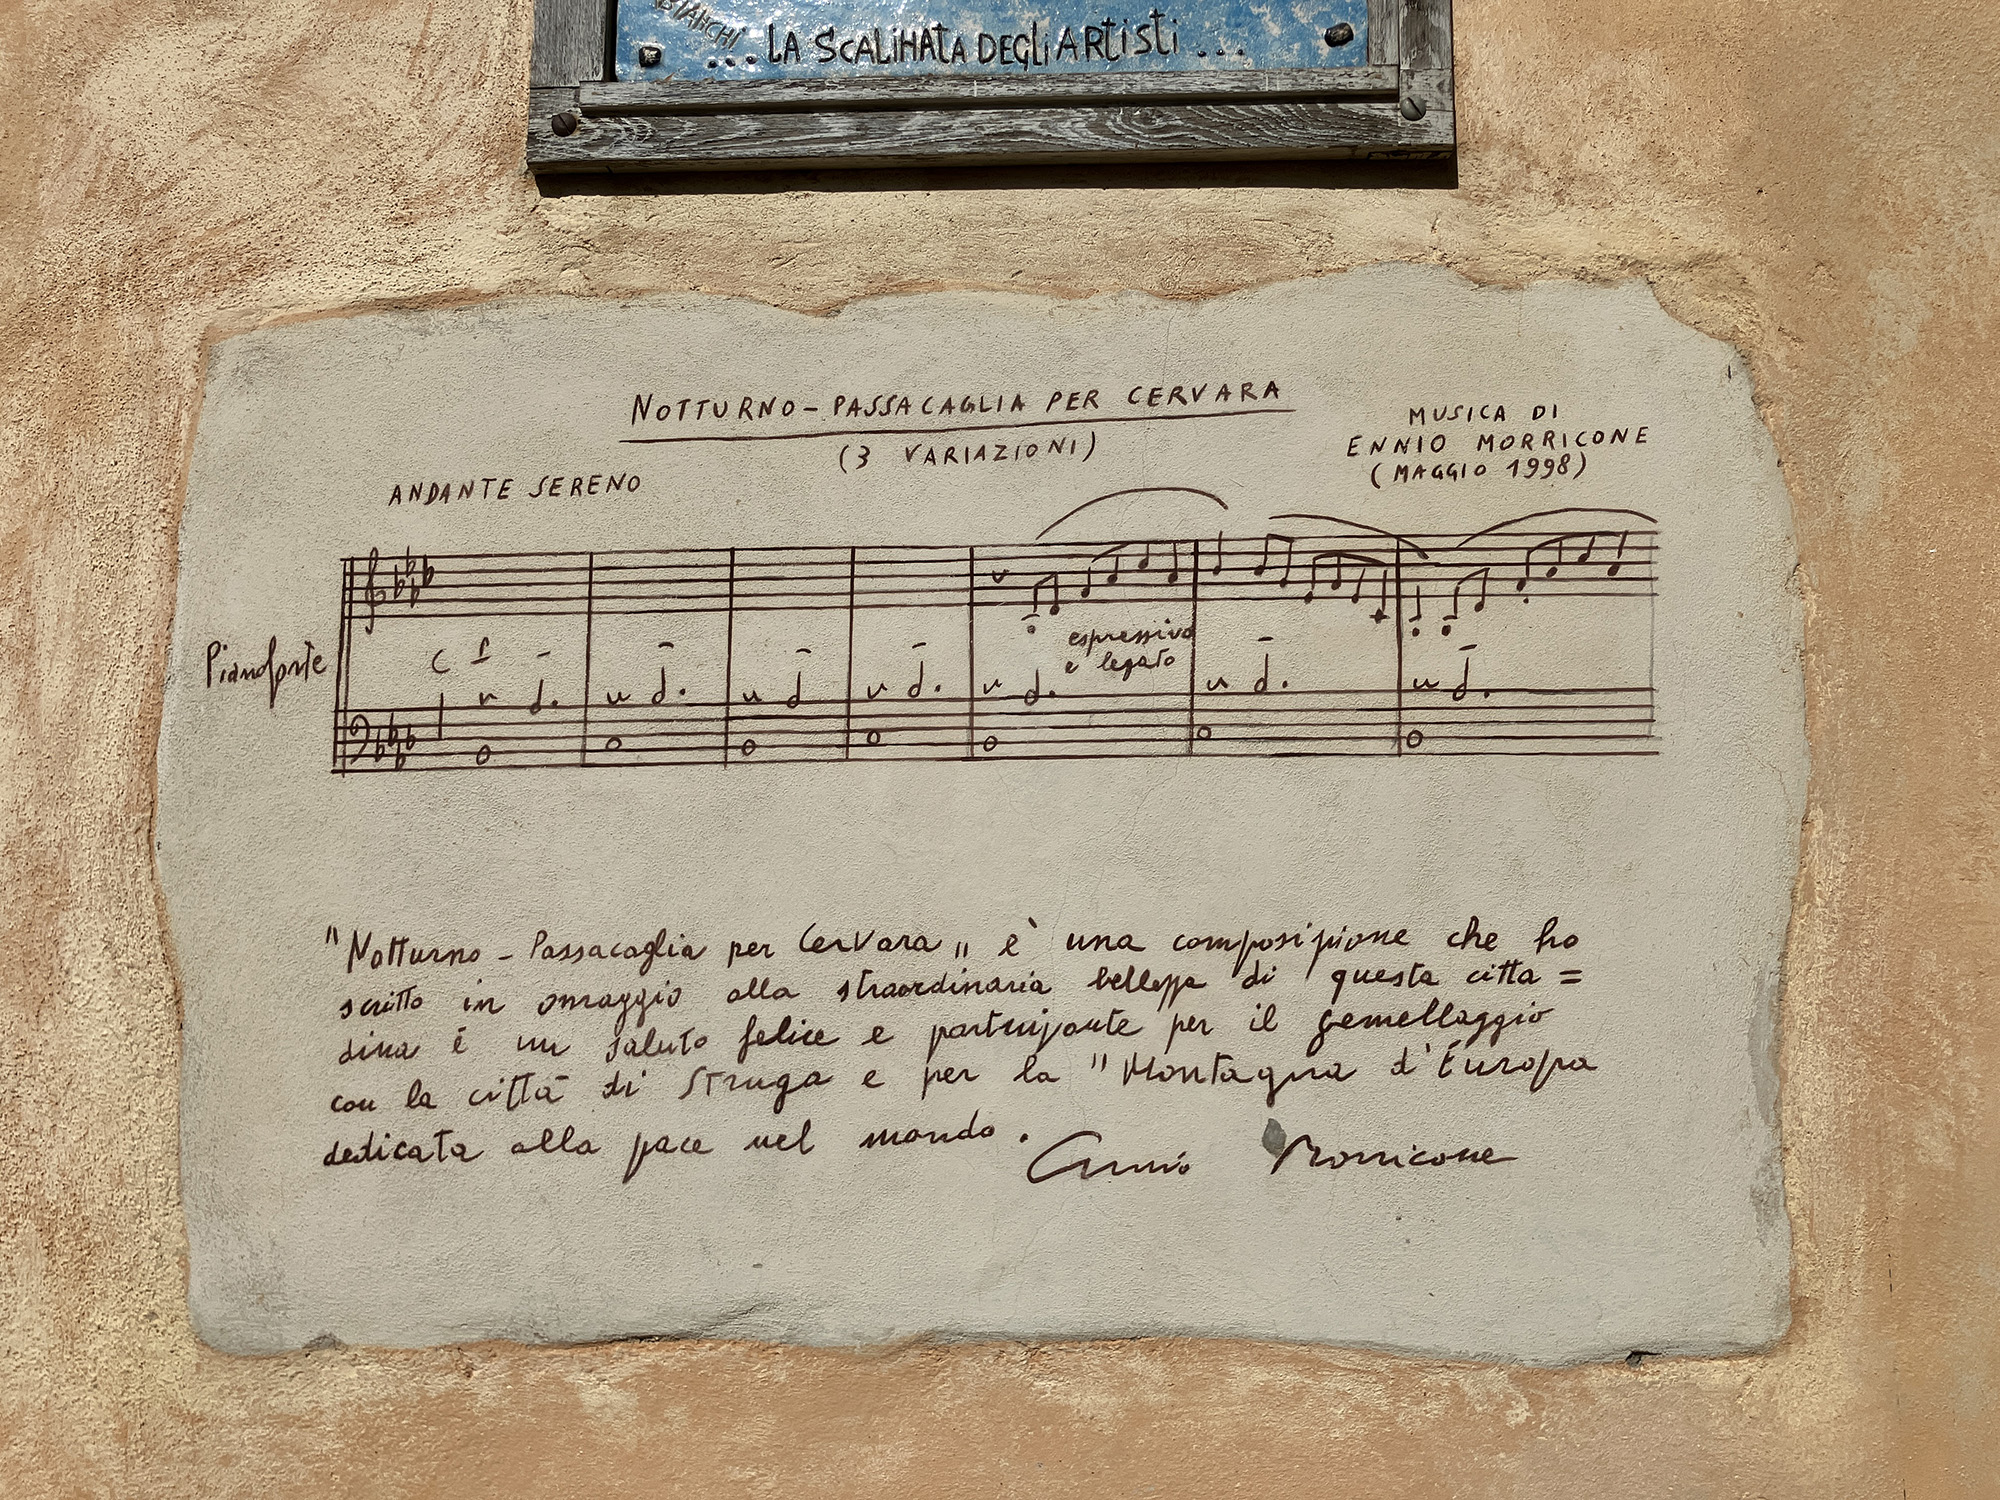 BIANCHI
...LA SCALiHATA DEGLi ARTisTi...
NOTTURNO-PASSACAGLIA PER CERVARA
(3 VARIAZIONI)
MUSICA DI
ENNIO MORRICONE
(MAGGIO 1998)
ANDANTE SERENO
Pianoforte
espressivo
e legato
"Notturno - Passacaglia per Cervara" è una composizione che ho
scritto in omaggio alla straordinaria bellezza di questa citta=
dina é un saluto felice e per il gemellaggio
con la città di Struga e per la "Montagna d'Europa
dedicata alla pace nel mondo.
Ennio Morricone